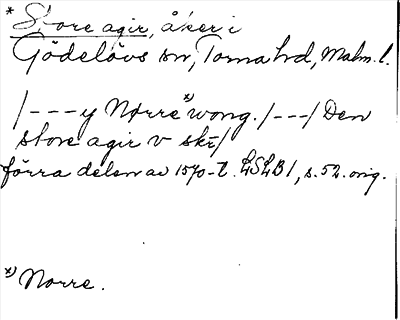 * Store agir, åker i
Gödelövs sn, Torna hd, Malm. l.
/---y Nørre *) wong. /---/ Den
store agir v sk-/
förra delen av 1570-t. LSLB 1, s. 52. orig.
*) Norre.